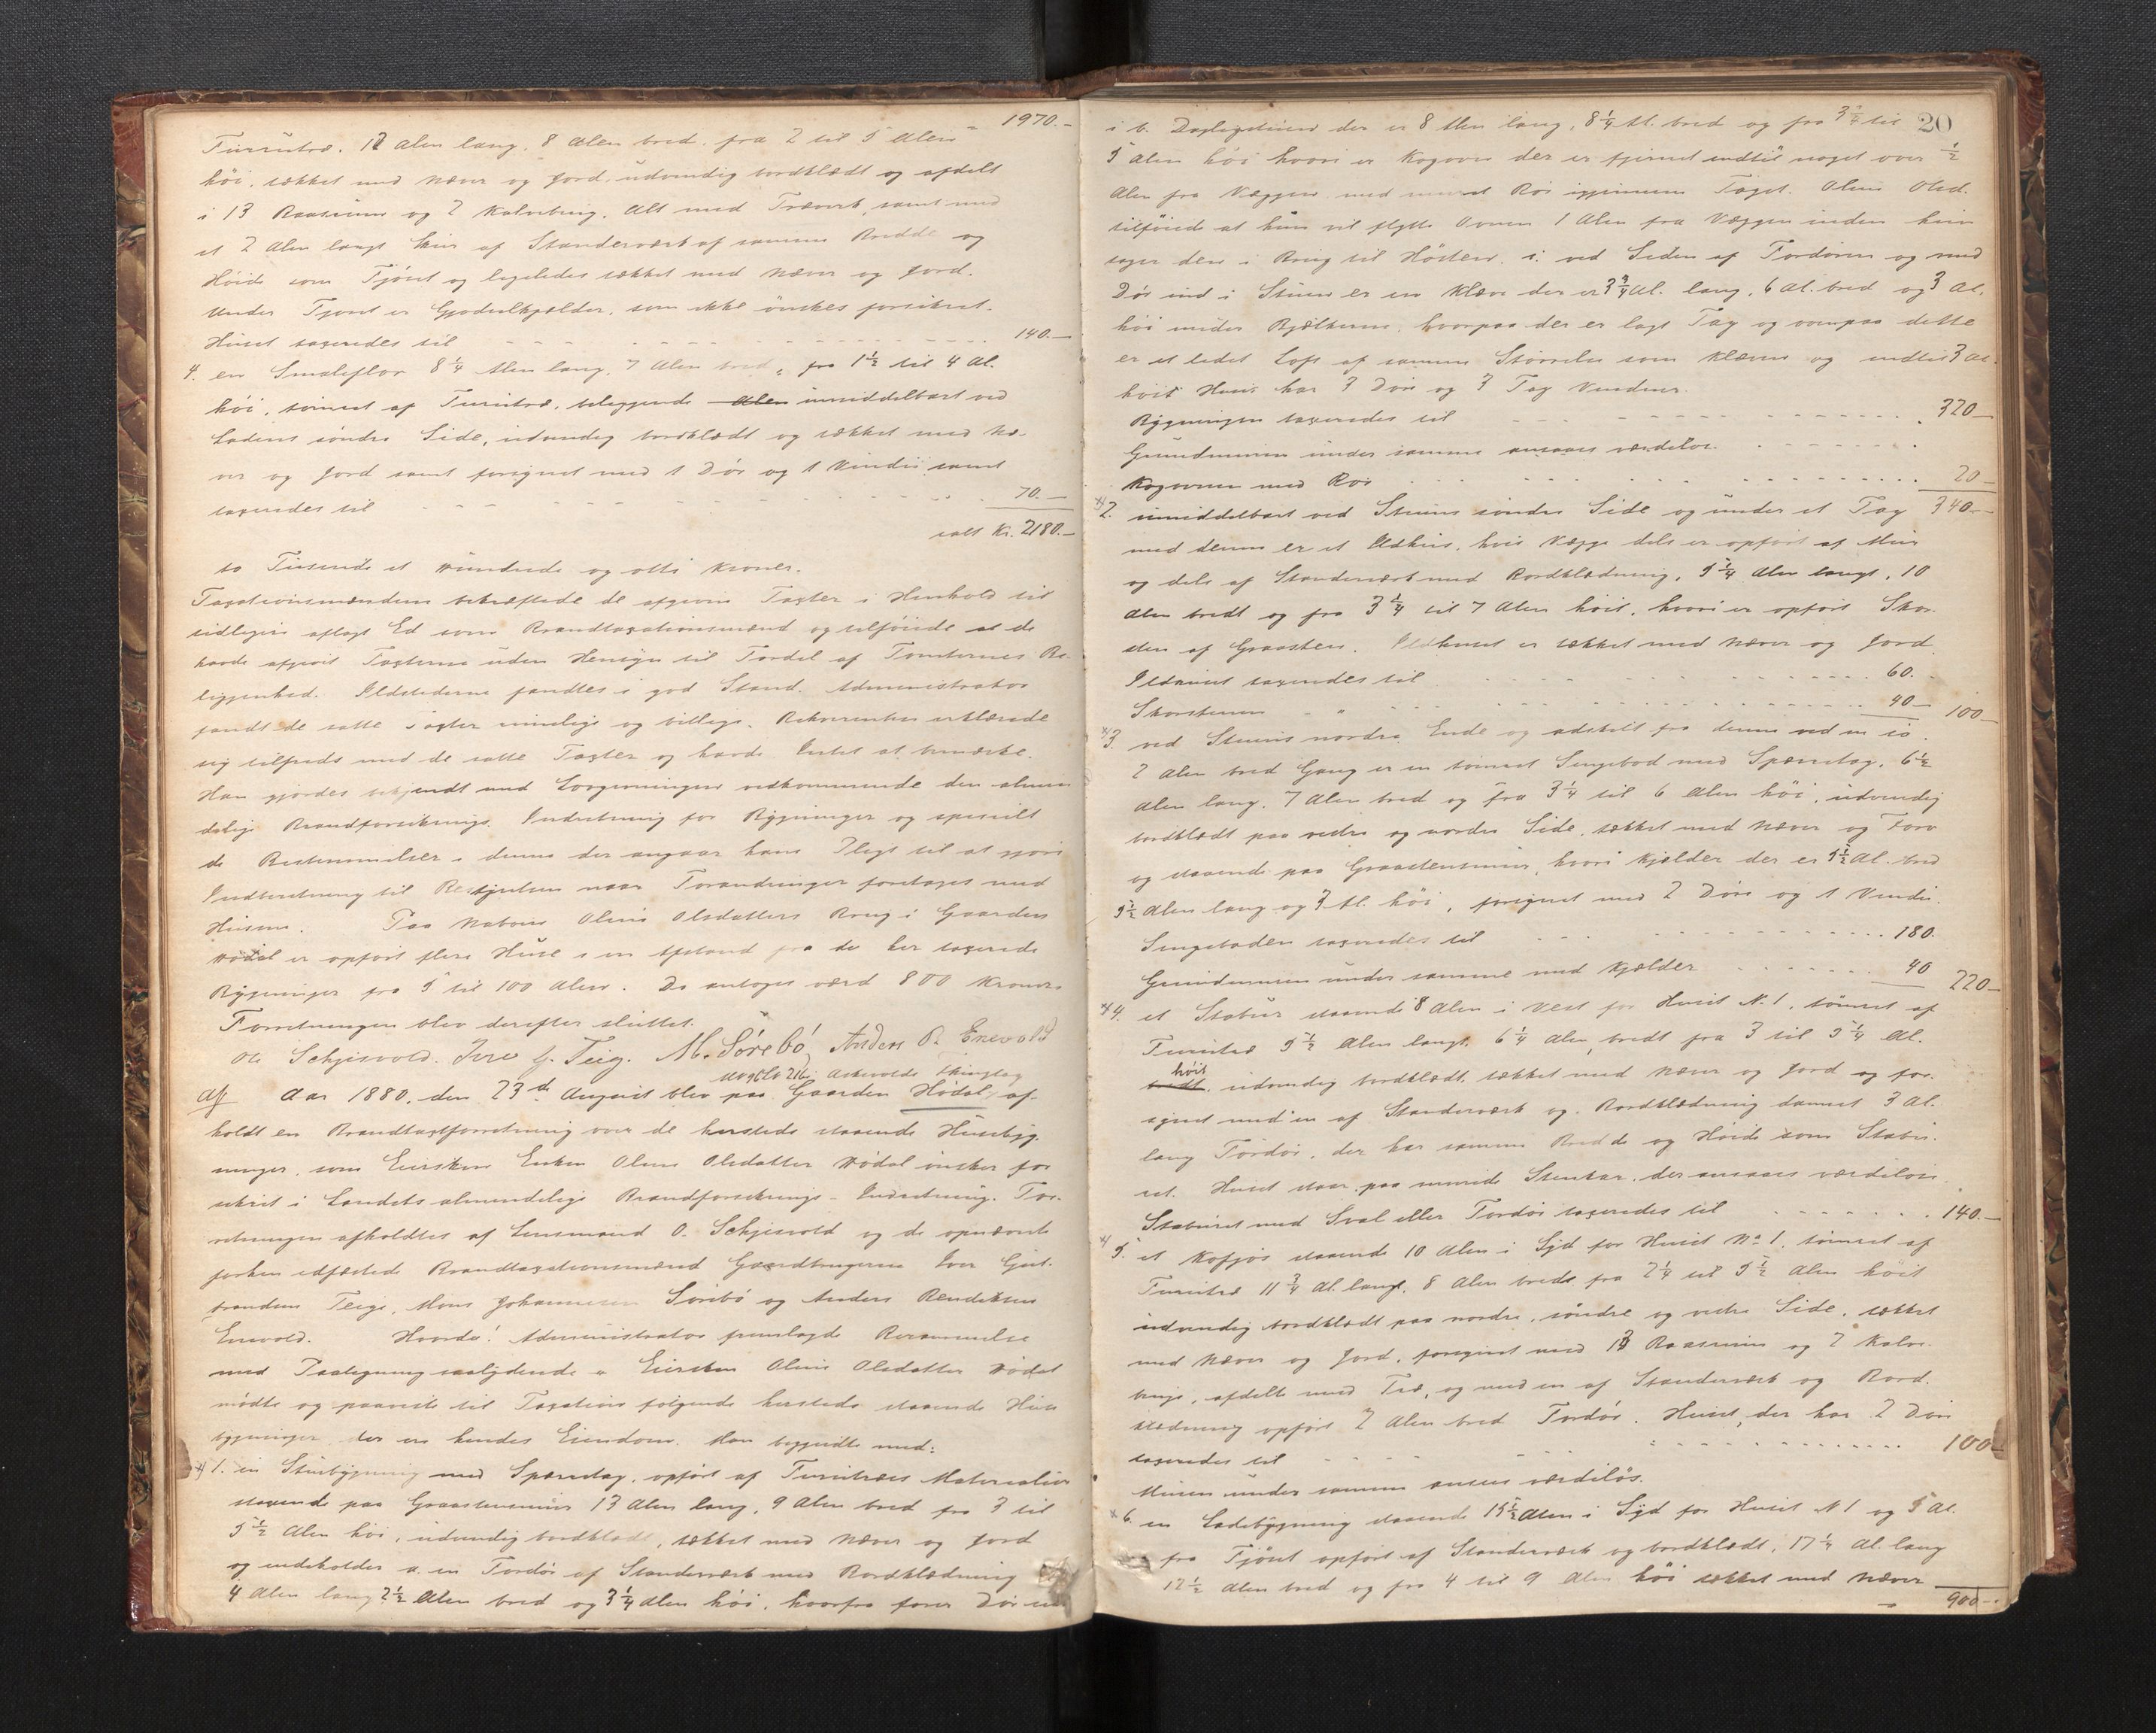 1970.-
Furutræ. 12 Alen lang. 8 Alen bred. fra 2 til 5 Alen
høi. tækket med Næver og Jord. udvendig bordklædt og afdelt
i 13 Baasrum og 2 Kalvebing. Alt med Træværk, samt med
et 2 Alen langt Skur af Standerværk af samme Bredde og
Høide som Fjøset og ligeledes tækket med Næver og Jord.
Under Fjøset er Gjødselkjælder, som ikke ønskes forsikret.
Huset taxeredes til 140.-
4. en Smaleflor 8 1/4 Alen lang, 7 Alen bred, fra 1 1/2 til 4 Al.
høi, tømret af Furutræ, beliggende Alen umiddelbart ved
Ladens søndre Side, udvendig bordklædt og tækket med Næ-
ver og Jord samt forsynet med 1 Dør og 1 Vindu samt
taxeredes til 70.-
ialt Kr. 2180.-
to Tusende et Hundrede og otti Kroner.
Taxationsmændene bekræftede de afgivne Taxter i Henhold til
tidligere aflagt Ed som Brandtaxationsmænd og tilføiede at de
havde afgivet Taxterne uden Hensyn til Fordel af Tomternes Be-
liggenhed. Ildstederne fandtes i god Stand. Administrator
fandt de satte Taxter rimelige og billige. Rekvirenten erklærede
sig tilfreds med de satte Taxter og havde Intet at bemærke.
Han gjordes bekjendt med Lovgivningen vedkommende den almin
delige Brandforsikrings Indretning for Bygninger og specielt
de Bestemmelser i denne der angaar hans Pligt til at gjøre
Indberetning til Bestyrelsen naar Forandringer foretages med
Husene. Paa Naboen Oline Olsdatters Brug i Gaarden
Hødal er opført flere Huse i en Afstand fra de her taxerede
Bygninger fra 5 til 100 Alen. De antoges værd 800 Kroner.
Forretningen blev derefter sluttet.
Ole Schjervold. Iver G. Teig. M. Sørebø, Anders B. Enevold
Askevolds Thinglag
Aar 1880. den 23de August blev paa Gaarden Hødal, af-
holdt en Brandtaxtforretning over de hersteds staaende Husebyg-
ninger, som Eiersken Enken Oline Olsdatter Hødal ønsker for
sikret i Landets almindelige Brandforsikrings-Indretning. For-
retningen afholdtes af Lensmand O. Schjervold og de opnævnte
forhen edfæstede Brandtaxationsmænd Gaardbrugerne Iver Gut-
brandsen Teige, Mons Johannesen Sørebø og Anders Bendiksen
Enevold. Hvorda: Administrator fremlagde Berammelse
med Paategning saalydende. Eiersken Oline Olsdatter Hødal
mødte og paaviste til Taxation følgende hersteds staaende Huse
bygninger, der er hendes Eiendom. Man begyndte med:
1. en Stuebygning med Sperretag, opført af Furutræes Materialier
staaende paa Graastensmur 13 Alen lang, 9 Alen bred fra 3 til
5 1/2 Alen høi, udvendig bordklædt, tækket med Næver og Jord
og indeholder a. en Fordør af Standerværk med Bordklædning
4 Alen lang 2 1/2 Alen bred og 3 1/4 Alen høi, hvorfra fører Dør ind
20
i b. Dagligstuen der er 8 Alen lang, 8 1/4 Al. bred og fra 3 3/4 til
5 Alen høi hvori er Kogovn der er fjernet indtil noget over 1/2
Alen fra Væggen med muret Rør igjennem Taget. Oline Olsd.
tilføiede at hun vil flytte Ovnen 1 Alen fra Væggen inden hun
tager den i Brug til Høsten. c. ved Siden af Fordøren og med
Dør ind i Stuen er en Kleve der er 3 3/4 Al. lang, 6 Al. bred og 3 Al.
høi under Bjælkerne, hvorpaa der er lagt Tag og ovenpaa dette
er et lidet Loft af samme Størrelse som Kleven og indtil 3 Al.
høit Huset har 3 Døre og 3 Fag Vinduer.
Bygningen taxeredes til 320-
Grundmuren under samme ansaaes værdiløs.
Kogovnen med Rør 20-
340.-
2. umiddelbart ved Stuens søndre Side og under et Tag
med denne er et Ildhus, hvis Vægge dels er opført af Mur
og dels af Standerværk med Bordklædning, 5 1/4 Alen langt, 10
Alen bredt og fra 3 1/4 til 7 Alen høit, hvori er opført Skor-
sten af Graasten. Ildhuset er tækket med Næver og Jord.
Ildhuset taxeredes til 60.
Skorstenen " 40- 100-
3. ved Stuens nordre Ende og adskilt fra denne ved en ca.
2 Alen bred Gang er en tømret Sengebod med Sperretag, 6 1/2
Alen lang, 7 Alen bred og fra 3 1/4 til 6 Alen høi, udvendig
bordklædt paa vestre og nordre Side, tækket med Næver og Torv
og staaende paa Graastensmur, hvori Kjælder der er 5 1/2 Al. bred
5 1/2 Alen lang og 3 Al. høi, forsynet med 2 Døre og 1 Vindu.
Sengeboden taxeredes til 180.
Grundmuren under samme med Kjælder 40 220-
4. et Stabur staaende 8 Alen i Vest for Huset N. 1, tømret af
Furutræ 5 1/2 Alen langt, 6 1/4 Alen bredt fra 3 til 5 1/4 Al.
høit
bredt. udvendig bordklædt, tækket med Næver og Jord og for-
synet med en af Standerværk og Bordklædning dannet 3 Al.
lang Fordør, der har samme Bredde og Høide som Stabu-
ret. Huset staar paa murede Stenkar, der ansaaes værdiløse.
Staburet med Sval eller Fordør taxeredes til 140.-
5. et Kofjøs staaende 10 Alen i Syd for Huset No 1, tømret af
Furutræ 11 3/4 Al. langt, 8 Alen bredt, fra 2 1/4 til 5 1/2 Alen høit
udvendig bordklædt paa nordre, søndre og vestre Side, tækket
med Næver og Jord, forsynet med 13 Baasrum og 2 Kalve-
binge, afdelt med Træ, og med en af Standerværk og Bord-
klædning opført 2 Alen bred Fordør. Huset, der har 2 Døre
taxeredes til 100-
Muren under samme ansees værdiløs.
6. en Ladebygning staaende 15 1/2 Alen i Syd for Huset N 1 og 5 Al.
fra Fjøset opført af Standerværk og bordklædt, 17 1/4 Al. lang
12 1/2 Alen bred og fra 4 til 9 Alen høi tækket med Næver
900-.